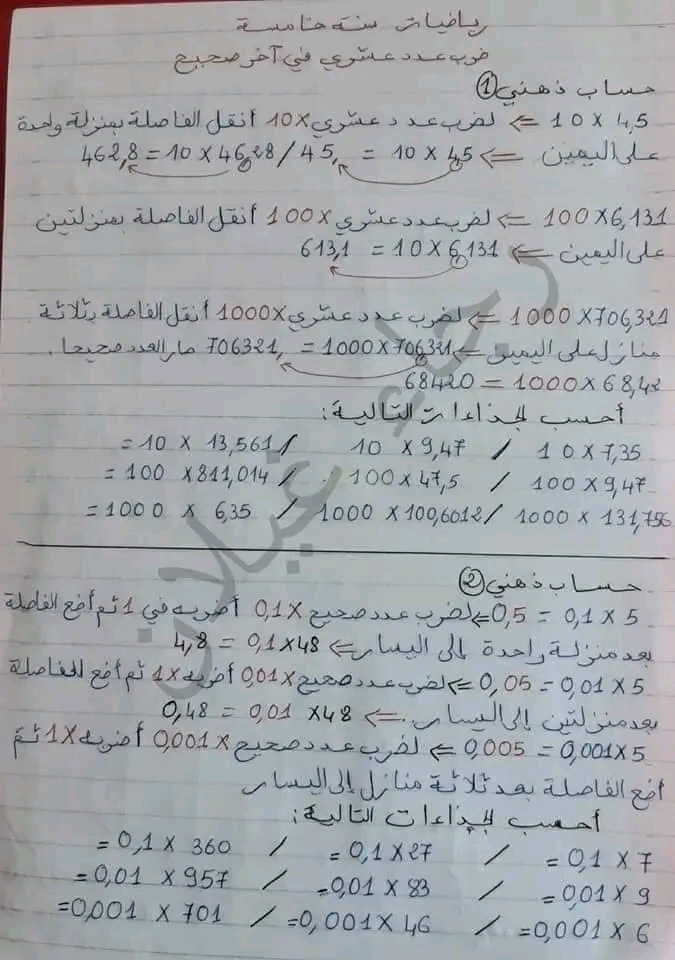 رياضيات سنة خامسة
ضرب عدد عشري في آخر صحيح
حساب ذهني ①
4,5 × 10 ⇐ لضرب عدد عشري ×10 أنقل الفاصلة بمنزلة واحدة
على اليمين ⇐ 4,5 × 10 = 45, / 46,28 × 10 = 462,8
6,131×100 ⇐ لضرب عدد عشري ×100 أنقل الفاصلة بمنزلتين
على اليمين ⇐ 6,131 × 10 = 613,1
706,321×1000 ⇐ لضرب عدد عشري ×1000 أنقل الفاصلة بثلاثة
منازل على اليمين ⇐ 706,321×1000 = 706321, صار العدد صحيحا.
68,42×1000 = 68420
أحسب الجذاءات التالية:
7,35×10 / 9,47× 10 / 13,561 × 10 =
9,47 × 100 / 47,5×100 / 811,014× 100 =
131,756 × 1000 / 100,6012× 1000 / 6,35 × 1000 =
حساب ذهني ②
5 × 0,1 = 0,5 ⇐ لضرب عدد صحيح ×0,1 أضربه في 1 ثم أضع الفاصلة
بعد منزلة واحدة إلى اليسار ⇐ 48×0,1 = 4,8
5×0,01 = 0,05 ⇐ لضرب عدد صحيح ×0,01 أضربه ×1 ثم أضع الفاصلة
بعد منزلتين إلى اليسار. ⇐ 48× 0,01 = 0,48
5×0,001 = 0,005 ⇐ لضرب عدد صحيح ×0,001 أضربه ×1 ثم
أضع الفاصلة بعد ثلاثة منازل إلى اليسار
أحسب الجذاءات التالية:
7 × 0,1 = / 27×0,1 = / 360 × 0,1 =
9 × 0,01 = / 83 × 0,01= / 957 × 0,01 =
6 × 0,001= / 46 × 0,001= / 701 × 0,001=
رجاء غيلان